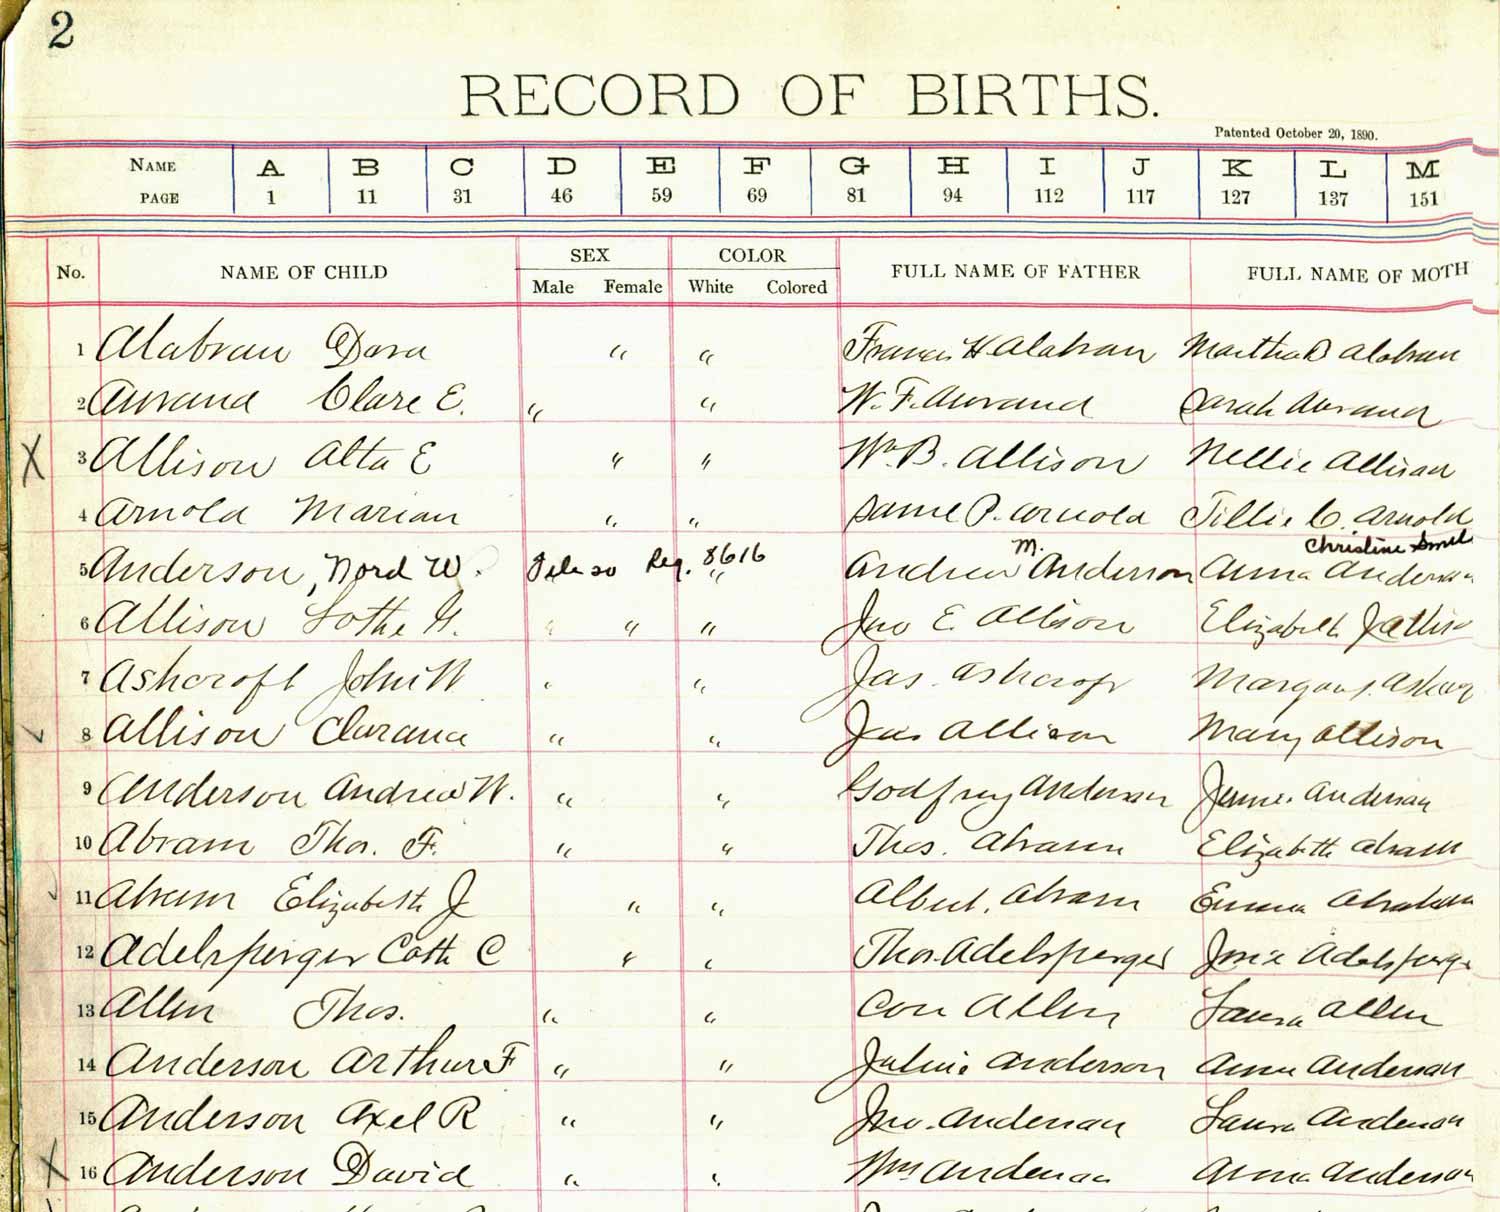 2
RECORD OF BIRTHS.
Patented October 20, 1890.
NAME A B C D E F G H I J K L M
PAGE 1 11 31 46 59 69 81 94 112 117 127 137 151
No. NAME OF CHILD SEX Male Female COLOR White Colored FULL NAME OF FATHER FULL NAME OF MOTH
1 Alabran Dora " " Francis H Alabran Martha B Alabran
2 Aurand Clare E. " " W. F. Aurand Sarah Aurand
X 3 Allison Alta E " " Wm B. Allison Nellie Allison
4 Arnold Marian " " Saml P. Arnold Tillie C. Arnold
5 Anderson, Nord W. Reg. 8616 " Andrew M. Anderson Anna Christine Anderson
6 Allison G. " " Jno E. Allison Elizabeth J Allis
7 Ashcroft John W " " Jas. Ashcroft Margaret Ashcr
8 Allison Clarance " " Jas Allison Mary Allison
9 Anderson Andrew W. " " Godfrey Anderson Jennie Anderson
10 Abram Thos. F. " " Thos. Abram Elizabeth Abram
11 Abram Elizabeth J " " Albert. Abram Emma Abraham
12 Adelsperger Cath C " " Thos. Adelsperger Josie Adelsperge
13 Allen Thos. " " Con Allen Laura Allen
14 Anderson Arthur F " " Julius Anderson Anna Anderson
15 Anderson Axel R " " Jno. Anderson Laura Anderson
X 16 Anderson David " " Wm Anderson Anna Anderson